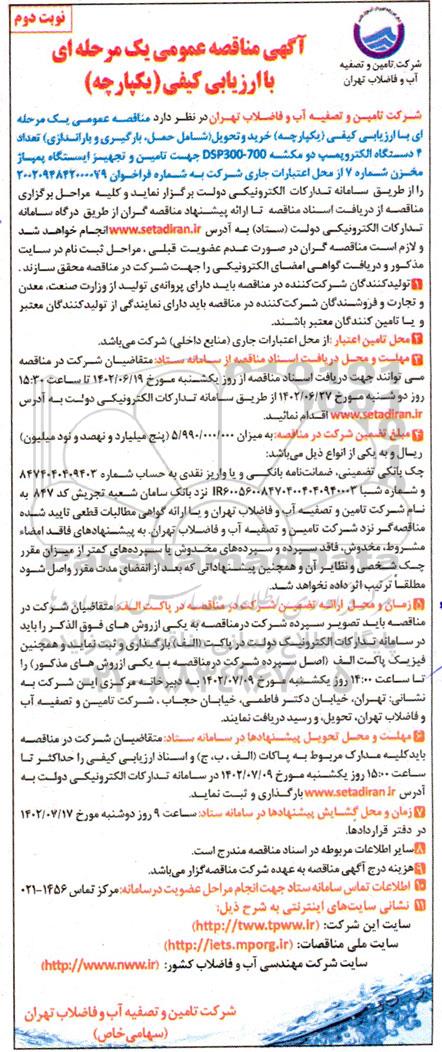 نوبت دوم
شرکت تامین و تصفیه
آب و فاضلاب تهران
آگهی مناقصه عمومی یک مرحله ای
با ارزیابی کیفی (یکپارچه)
شرکت تامین و تصفیه آب و فاضلاب تهران در نظر دارد مناقصه عمومی یک مرحله
ای با ارزیابی کیفی (یکپارچه) خرید و تحویل (شامل حمل، بارگیری و باراندازی) تعداد
۴ دستگاه الکتروپمپ دو مکشه DSP300-700 جهت تامین و تجهیز ایستگاه پمپاژ
مخزن شماره ۷ از محل اعتبارات جاری شرکت به شماره فراخوان ۲۰۰۲۰۹۴۸۴۲۰۰۰۰۷۹
را از طریق سامانه تدارکات الکترونیکی دولت برگزار نماید و کلیه مراحل برگزاری
مناقصه از دریافت اسناد مناقصه تا ارائه پیشنهاد مناقصه گران از طریق درگاه سامانه
تدارکات الکترونیکی دولت (ستاد) به آدرس www.setadiran.ir انجام خواهد شد
و لازم است مناقصه گران در صورت عدم عضویت قبلی، مراحل ثبت نام در سایت
مذکور و دریافت گواهی امضای الکترونیکی را جهت شرکت در مناقصه محقق سازند.
۱ تولیدکنندگان شرکت‌کننده در مناقصه باید دارای پروانه‌ی تولید از وزارت صنعت، معدن
و تجارت و فروشندگان شرکت‌کننده در مناقصه باید دارای نمایندگی از تولیدکنندگان معتبر
و یا تامین کنندگان معتبر باشند.
۲ محل تامین اعتبار: از محل اعتبارات جاری (منابع داخلی) شرکت می‌باشد.
۳ مهلت و محل دریافت اسناد مناقصه از سامانه ستاد: متقاضیان شرکت در مناقصه
می توانند جهت دریافت اسناد مناقصه از روز یکشنبه مورخ ۱۴۰۲/۰۶/۱۹ تا ساعت ۱۵:۳۰
روز دوشنبه مورخ ۱۴۰۲/۰۶/۲۷ از طریق سامانه تدارکات الکترونیکی دولت به آدرس
www.setadiran.ir اقدام نمائید.
۴ مبلغ تضمین شرکت در مناقصه: به میزان ۵/۹۹۰/۰۰۰/۰۰۰ (پنج میلیارد و نهصد و نود میلیون)
ریال و به یکی از انواع ذیل می‌باشد:
چک بانکی تضمینی، ضمانت‌نامه بانکی و یا واریز نقدی به حساب شماره ۸۴۷۴۰۴۰۴۰۹۴۰۳
و شماره شبا نزد بانک سامان شعبه تجریش کد ۸۴۷ به
نام شرکت تامین و تصفیه آب و فاضلاب تهران و یا ارائه گواهی مطالبات قطعی تایید شده
مناقصه‌گر نزد شرکت تامین و تصفیه آب و فاضلاب تهران. به پیشنهادهای فاقد امضاء
مشروط، مخدوش، فاقد سپرده و سپرده‌های مخدوش یا سپرده‌های کمتر از میزان مقرر
چک شخصی و نظایر آن و همچنین پیشنهاداتی که بعد از انقضای مدت مقرر واصل شود
مطلقاً ترتیب اثر داده نخواهد شد.
۵ زمان و محل ارائه تضمین شرکت در مناقصه در پاکت الف: متقاضیان شرکت در
مناقصه باید تصویر سپرده شرکت درمناقصه به یکی ازروش های فوق الذکر را باید
در سامانه تدارکات الکترونیک دولت در پاکت (الف) بارگذاری و ثبت نماید و همچنین
فیزیک پاکت الف (اصل سپرده شرکت درمناقصه به یکی ازروش های مذکور) را
تا ساعت ۱۴:۰۰ روز یکشنبه مورخ ۱۴۰۲/۰۷/۰۹ به دبیرخانه مرکزی این شرکت به
نشانی: تهران، خیابان دکتر فاطمی، خیابان حجاب، شرکت تامین و تصفیه آب
و فاضلاب تهران، تحویل، و رسید دریافت نمایند.
۶ مهلت و محل تحویل پیشنهادها در سامانه ستاد: متقاضیان شرکت در مناقصه
باید کلیه مدارک مربوط به پاکات (الف، ب، ج) و اسناد ارزیابی کیفی را حداکثر تا
ساعت ۱۵:۰۰ روز یکشنبه مورخ ۱۴۰۲/۰۷/۰۹ در سامانه تدارکات الکترونیکی دولت به
آدرس www.setadiran.ir بارگذاری و ثبت نماید.
۷ زمان و محل گشایش پیشنهادها در سامانه ستاد: ساعت ۹ روز دوشنبه مورخ ۱۴۰۲/۰۷/۱۷
در دفتر قراردادها.
۸ سایر اطلاعات مربوطه در اسناد مناقصه مندرج است.
۹ هزینه درج آگهی مناقصه به عهده شرکت مناقصه‌گزار می‌باشد.
۱۰ اطلاعات تماس سامانه ستاد جهت انجام مراحل عضویت در سامانه: مرکز تماس ۱۴۵۶-۰۲۱
۱۱ نشانی سایت‌های اینترنتی به شرح ذیل:
سایت این شرکت: (http://tww.tpww.ir)
سایت ملی مناقصات: (http://iets.mporg.ir)
سایت شرکت مهندسی آب و فاضلاب کشور: (http://www.nww.ir)
شرکت تامین و تصفیه آب و فاضلاب تهران
(سهامی خاص)